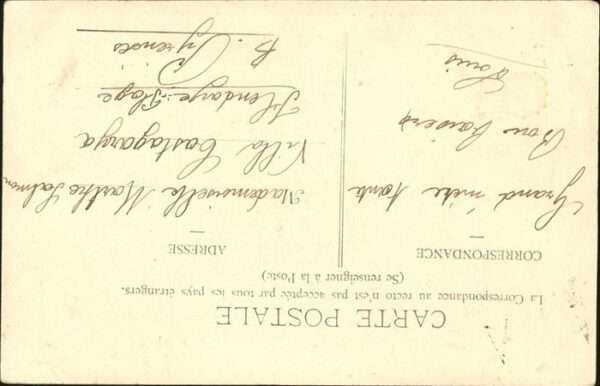 CARTE POSTALE
La Correspondance au recto n'est pas acceptée par tous les pays étrangers.
(Se renseigner à la Poste)
CORRESPONDANCE
Grand'mère tante
Bon baisers
Louis
ADRESSE
Mademoiselle Marthe Salmon
Villa Castagarya
Hendaye-Plage
B. Pyrénées